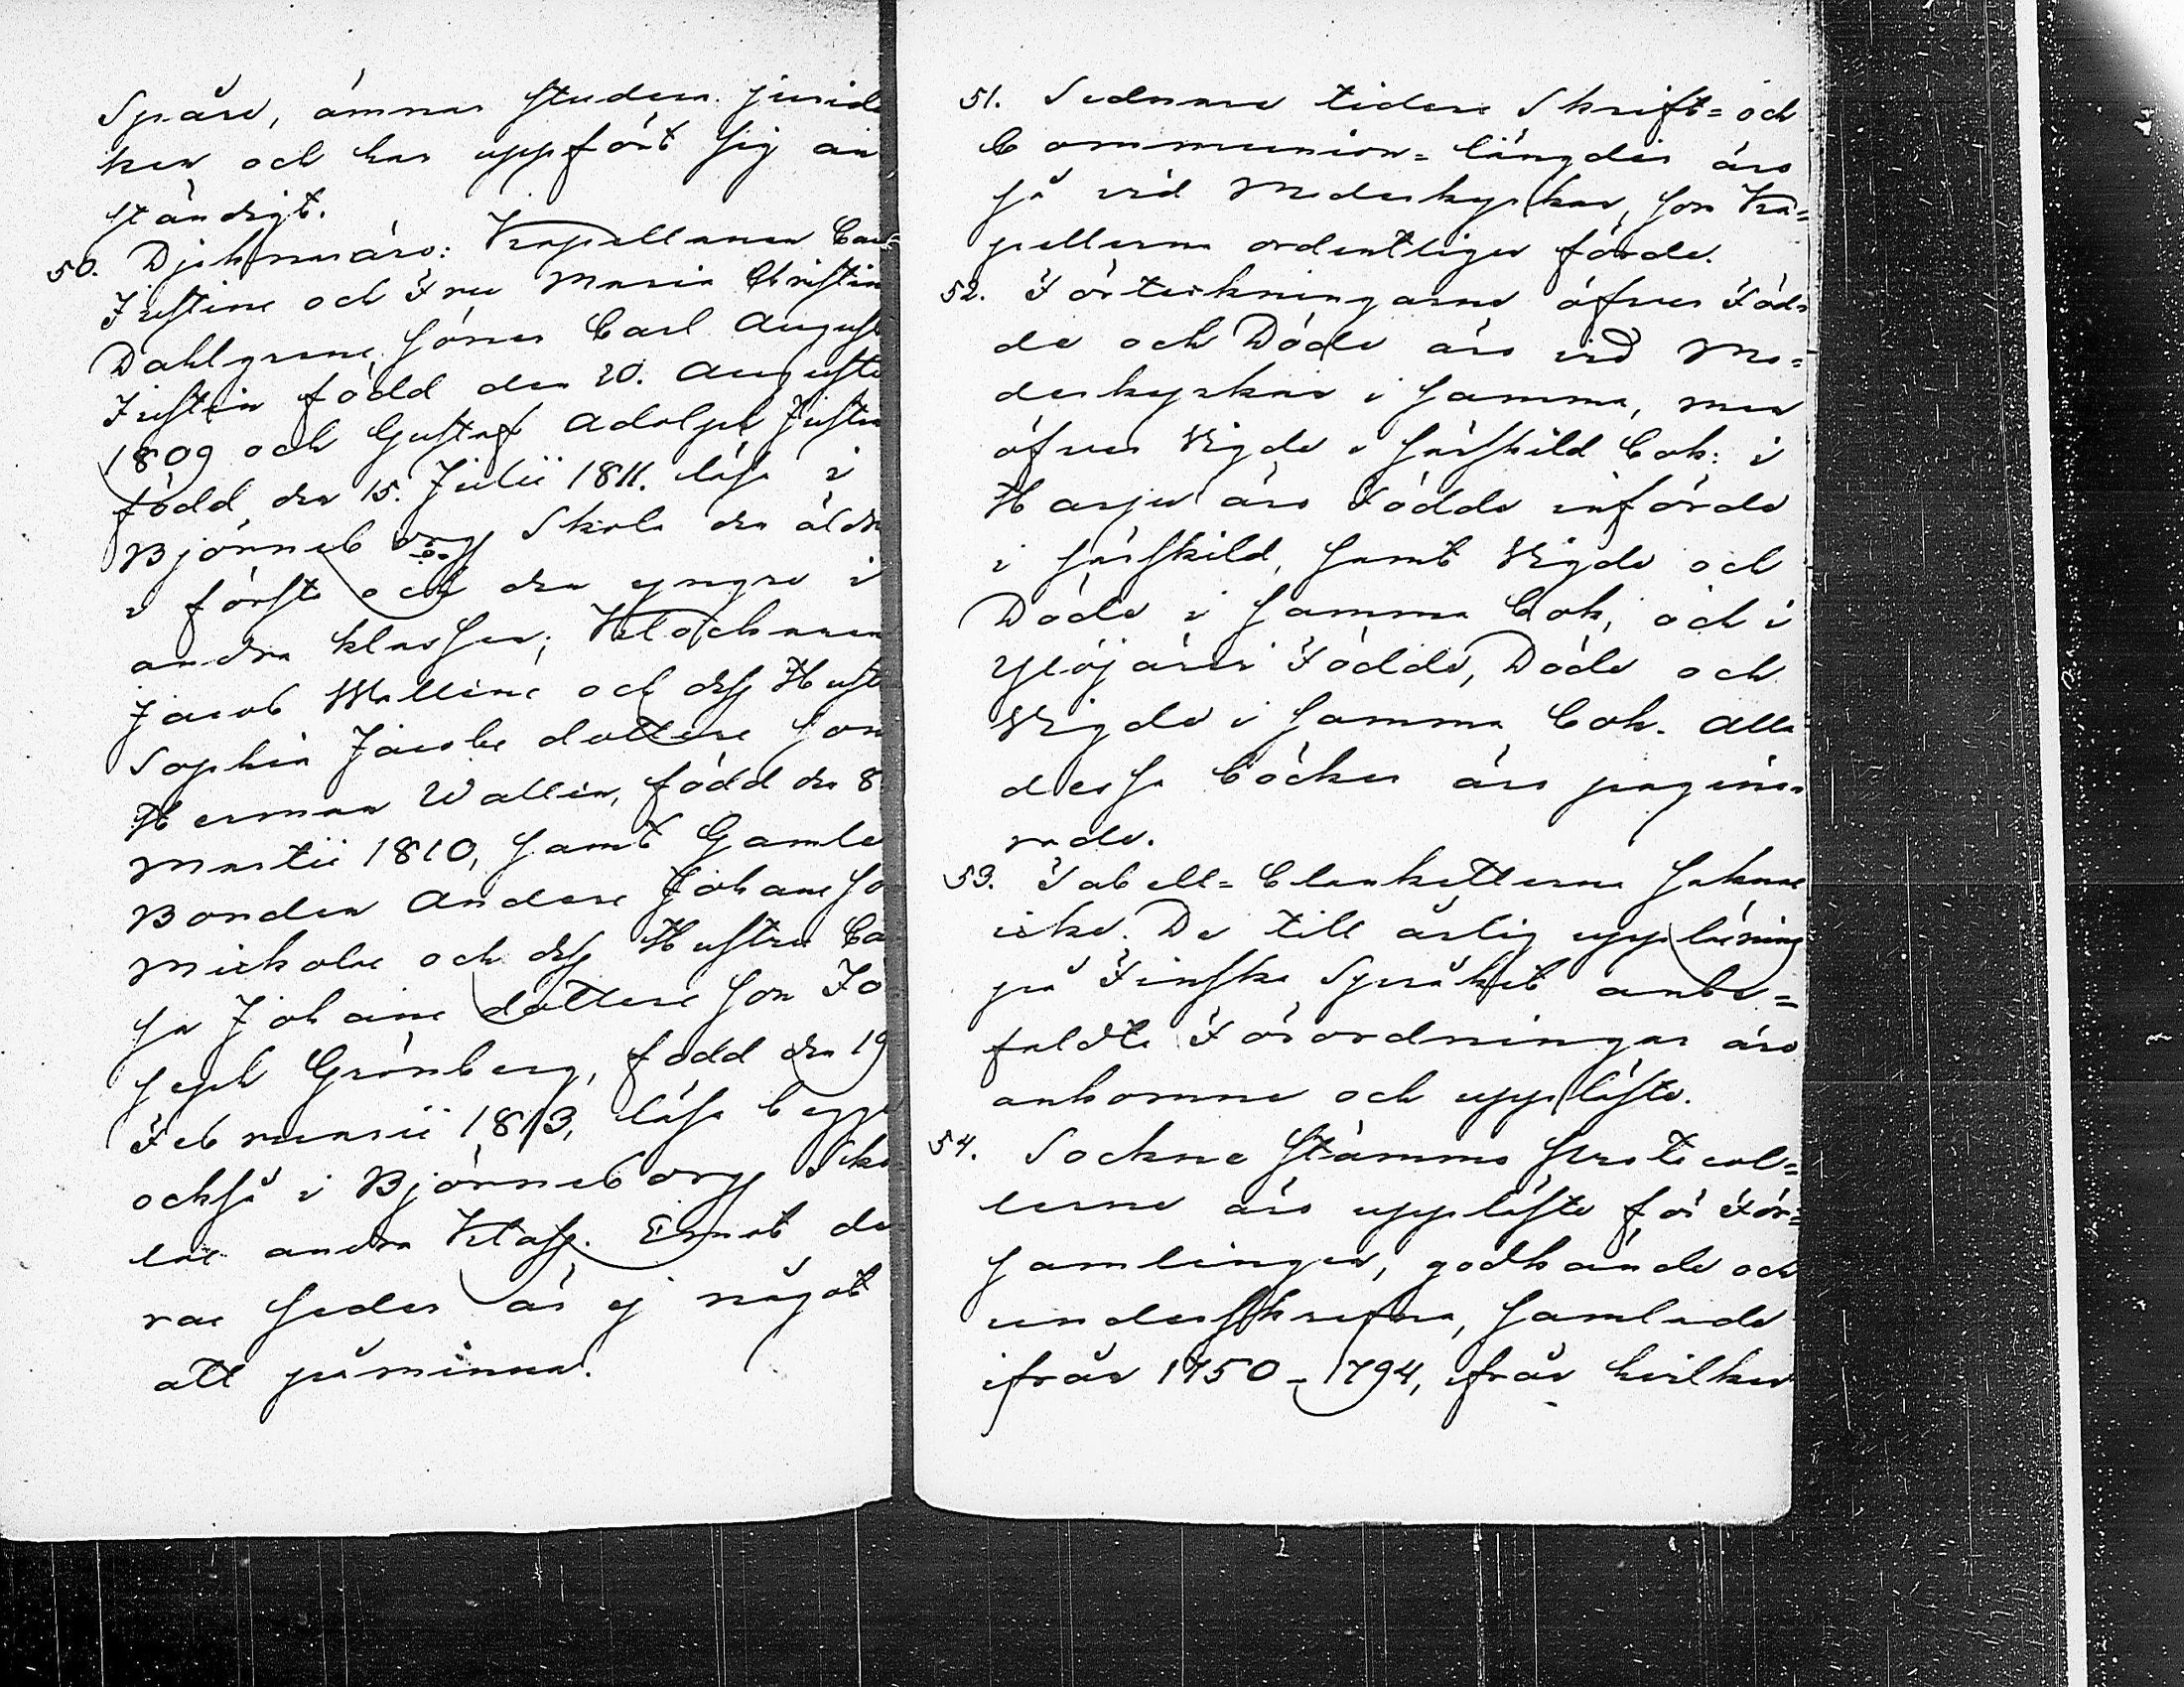 Språk, ämnar studera juridi
ken och har uppfört sig an
ständigt.
50. Djeknar äro: Kapellanen Carl
Justins och Fru Maria Christina
Dahlgrens söner Carl August
Justin född den 20. Augusti
1809 och Gustaf Adolph Justin
född den 15. Julii 1811. läsa i
Björneborgs Skola den äldre
i första och den yngre i
andra klassen; Klockaren
Jacob Wallins och dess Hustru
Sophia Jacobs dotters son
Herman Wallin, född den 8
Martii 1810, samt Gamle
Bonden Anders Johans so
Mickola och dess Hustru Ca
sa Johans dotters son Jo
seph Grönberg, född den 19
Februarii 1813, läsa begge
också i Björneborgs Sko
las andra Klass. Emot de
ras seder är ej något
att påminna.
51. Sednare tiders Skrift= och
Communion=längder äro
så vid Moderkyrkan, som Ka=
pellerna ordentligen förde.
52. Förteckningarne öfver Föd=
de och Döde äro vid Mo=
derkyrkan i samma, men
öfver Vigde i särskild bok: i
Harju äro Födde införde
i särskild, samt Vigde och
Döde i samma bok, och i
Ylöjärvi Födde, Döde och
Vigde i samma bok. Alla
dessa böcker äro pagine=
rade.
53. Tabell=blanketterne saknas
icke. De till årlig uppläsning
på Finska Språket anbe=
faldte Förordningar äro
ankomne och uppläste.
54. Sockne Stämmo Protocol=
lerne äro uppläste för För=
samlingen, godkände och
underskrefne, samlade
ifrån 1750-1794, ifrån hvilken